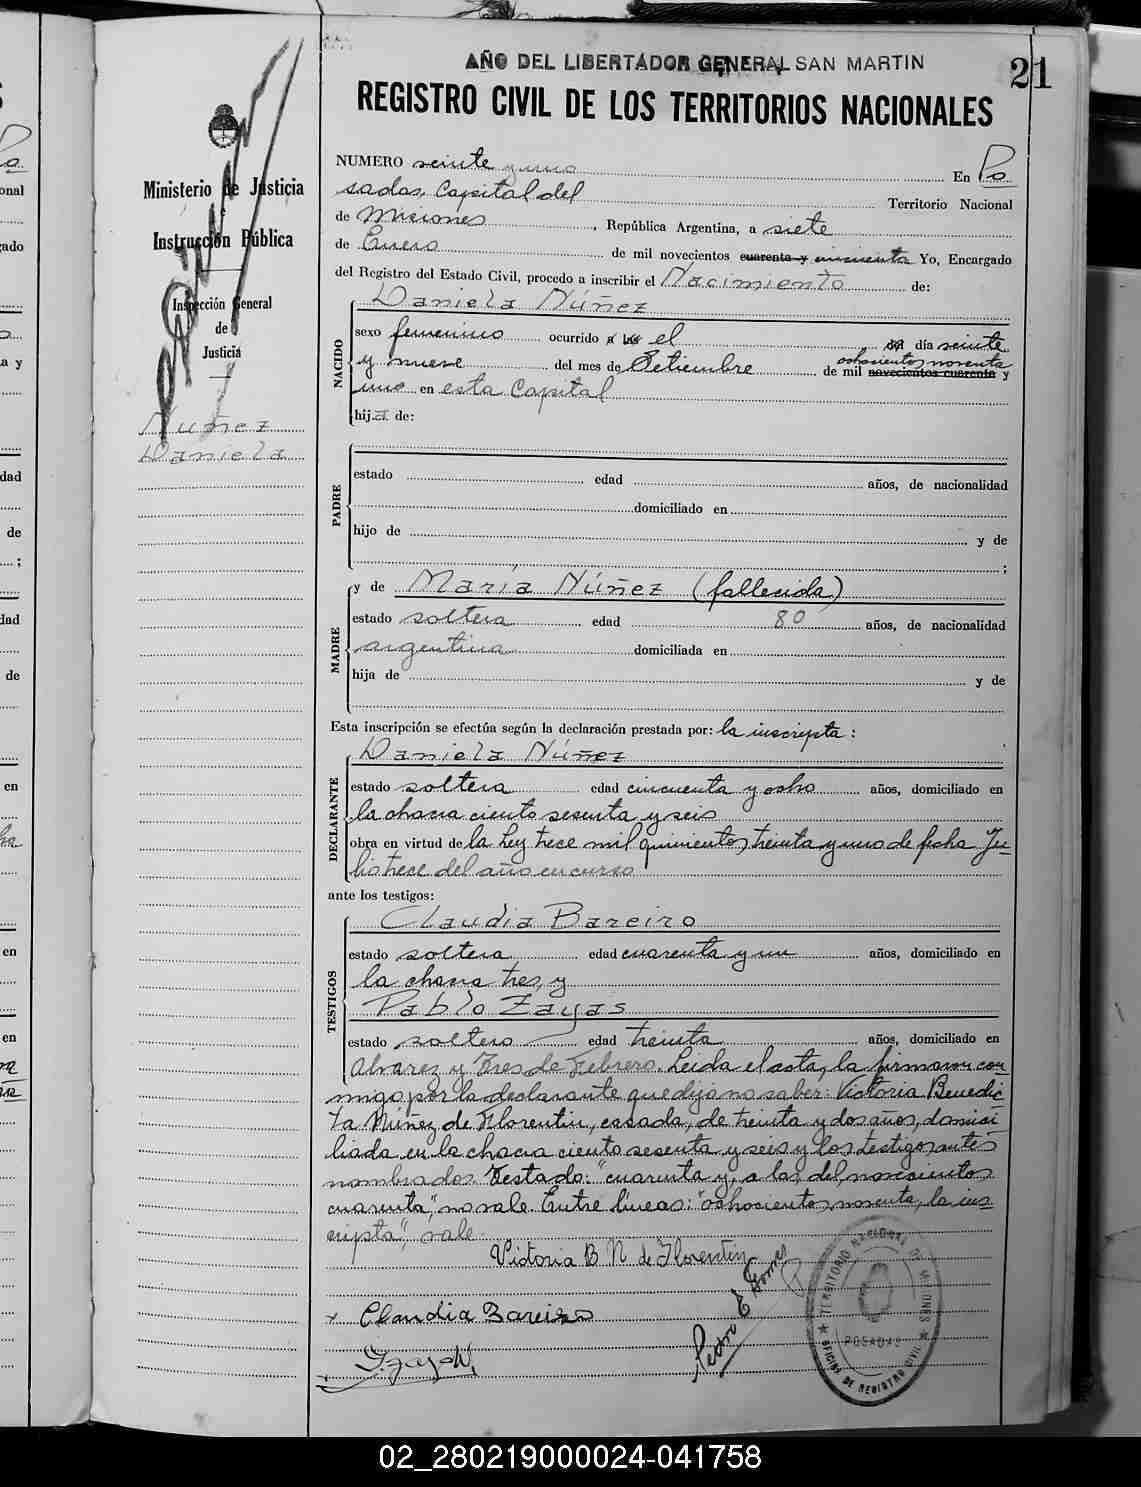 AÑO DEL LIBERTADOR GENERAL SAN MARTIN
21
REGISTRO CIVIL DE LOS TERRITORIOS NACIONALES
Ministerio de Justicia
e
Instrucción Pública
Inspección General
de
Justicia
Nuñez
Daniela
NUMERO veinte y uno En Po
sadas, Capital del Territorio Nacional
de Misiones, República Argentina, a siete
de Enero de mil novecientos cuarenta y cincuenta Yo, Encargado
del Registro del Estado Civil, procedo a inscribir el Nacimiento de:
NACIDO
Daniela Núñez
sexo femenino ocurrido a las el del día veinte
ochocientos noventa
y nueve del mes de Setiembre de mil novecientos cuarenta y
uno en esta Capital
hija de:
PADRE
estado edad años, de nacionalidad
domiciliado en
hijo de y de
;
MADRE
y de María Núñez (fallecida)
estado soltera edad 80 años, de nacionalidad
argentina domiciliada en
hija de y de
Esta inscripción se efectúa según la declaración prestada por: la inscripta:
DECLARANTE
Daniela Núñez
estado soltera edad cincuenta y ocho años, domiciliado en
la chacra ciento sesenta y seis
obra en virtud de la Ley trece mil quinientos treinta y uno de fecha Ju-
lio trece del año en curso
ante los testigos:
TESTIGOS
Claudia Bareiro
estado soltera edad cuarenta y un años, domiciliado en
la chacra tres, y
Pablo Zayas
estado soltero edad treinta años, domiciliado en
Alvarez y Tres de Febrero. Leida el acta, la firmaron con-
migo por la declarante que dijo no saber: Victoria Benedic-
ta Núñez de Florentin, casada, de treinta y dos años, domici-
liada en la chacra ciento sesenta y seis y los testigos antes
nombrados. Testado: "cuarenta y, a las, del, novecientos
cuarenta", no vale. Entre lineas: "ochocientos noventa, la ins-
cripta", vale.
Victoria B N de Florentin
Claudia Bareiro
Pedro E Gomez
TERRITORIO NACIONAL DE MISIONES
POSADAS
OFICINA DE REGISTRO CIVIL
02_280219000024-041758